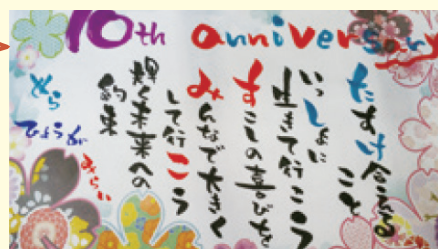 10th anniversary
たすけ合えること
いっしょに
生きて行こう
すこしの喜びを
みんなで大きく
して行こう
輝く未来への
約束
そら
ひょうが
みらい